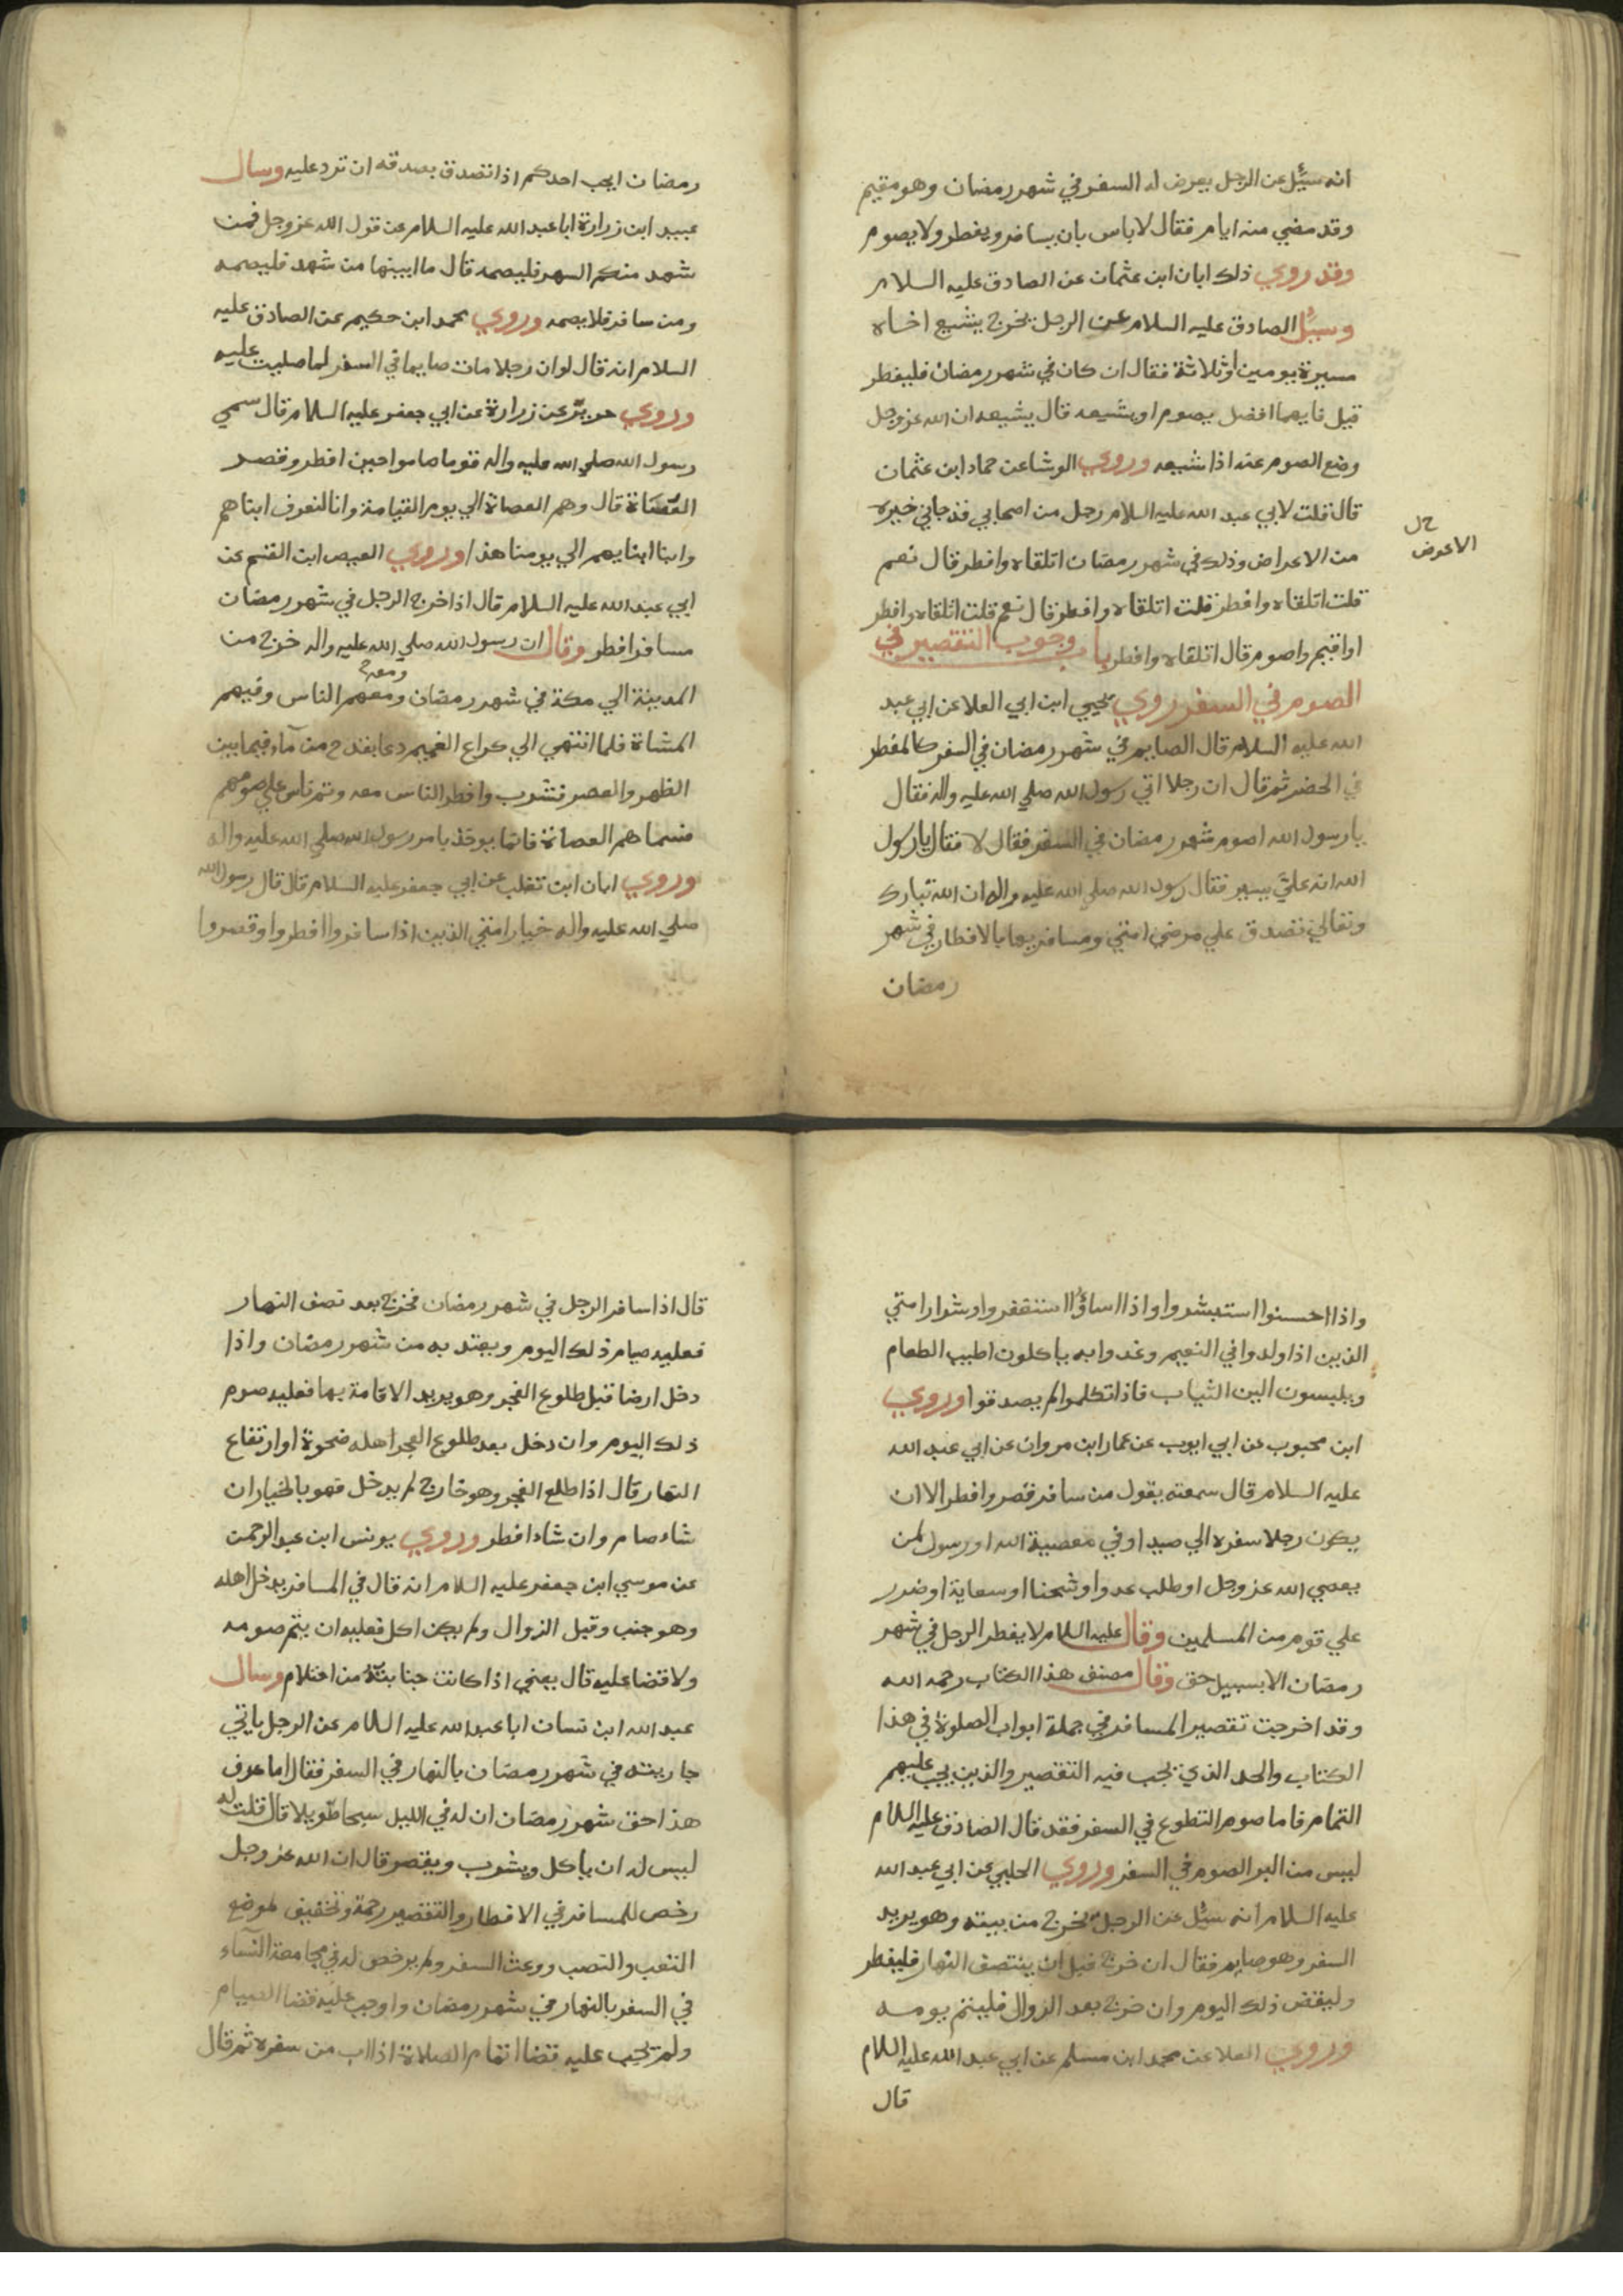 انه سيُل عن الرجل يعرض له السفر في شهر رمضان وهو مقيم
وقد مضي منه ايام فقال لا باس بان يسافر ويفطر ولا يصوم
وقد روي ذلك ابان ابن عثمان عن الصادق عليه السلام
وسيُل الصادق عليه السلام عن الرجل يخرج يشيع اخاه
مسيرة يومين او ثلاثة فقال ان كان في شهر رمضان فليفطر
قيل فايهما افضل يصوم او يشيعه قال يشيعه ان الله عز وجل
وضع الصوم عنه اذا شيعه وروي الوشا عن حماد ابن عثمان
قال قلت لابي عبد الله عليه السلام رجل من اصحابي قد جاني خبره
من الاعراض وذلك في شهر رمضان اتلقاه وافطر قال نعم
الاعوض
قلت اتلقاه وافطر قلت اتلقاه وافطر قال نعم قلت اتلقاه وافطر
او اقيم واصوم قال اتلقاه وافطر باب وجوب التقصير في
الصوم في السفر روي يحيي ابن ابي العلا عن ابي عبد
الله عليه السلام قال الصايم في شهر رمضان في السفر كالمفطر
في الحضر ثم قال ان رجلا اتي رسول الله صلي الله عليه واله فقال
يا رسول الله اصوم شهر رمضان في السفر فقال لا فقال يا رسول
الله انه علي يسير فقال رسول الله صلي الله عليه واله ان الله تبارك
وتعالي تصدق علي مرضي امتي ومسافريها بالافطار في شهر
رمضان
رمضان ايحب احدكم اذا تصدق بصدقه ان ترد عليه وسال
عبيد ابن زرارة ابا عبد الله عليه السلام عن قول الله عز وجل فمن
شهد منكم الشهر فليصمه قال ما ابينها من شهد فليصمه
ومن سافر فلا يصمه وروي محمد ابن حكيم عن الصادق عليه
السلام انه قال لو ان رجلا مات صايما في السفر لما صليت عليه
وروي حريز عن زرارة عن ابي جعفر عليه السلام قال سمي
رسول الله صلي الله عليه واله قوما صاموا حين افطر وقصر
العُصَاة قال وهم العصاة الي يوم القيامة وانا لنعرف ابناهم
وابنا ابنايهم الي يومنا هذا وروي العيص ابن القسم عن
ابي عبد الله عليه السلام قال اذا خرج الرجل في شهر رمضان
مسافرا فطر وقال ان رسول الله صلي الله عليه واله خرج من
ومعه
المدينة الي مكة في شهر رمضان ومعهم الناس وفيهم
المشاة فلما انتهي الي كراع الغميم دعا بقدح من مآء فيما بين
الظهر والعصر فشرب وافطر الناس معه وتم ناس علي صومهم
فسماهم العصاة فانما يوخذ بامر رسول الله صلي الله عليه واله
وروي ابان ابن تغلب عن ابي جعفر عليه السلام قال قال رسول الله
صلي الله عليه واله خيار امتي الذين اذا سافروا افطروا وقصروا
واذا احسنوا استبشروا واذا اساؤا استغفروا وشرار امتي
الذين اذا ولدوا في النعيم وغدوا به ياكلون اطيب الطعام
ويلبسون الين الثياب فاذا تكلموا لم يصدقوا وروي
ابن محبوب عن ابي ايوب عن عمار ابن مروان عن ابي عبد الله
عليه السلام قال سمعته يقول من سافر قصر وافطر الا ان
يكون رجلا سفره الي صيد او في معصية الله او رسول لمن
يعصي الله عز وجل او طلب عدو او شحنا او سعاية او ضرر
علي قوم من المسلمين وقال عليه السلام لا يفطر الرجل في شهر
رمضان الا بسبيل حق وقال مصنف هذا الكتاب رحمه الله
وقد اخرجت تقصير المسافر في جملة ابواب الصلوة في هذا
الكتاب والحد الذي يجب فيه التقصير والذين يجب عليهم
التمام فاما صوم التطوع في السفر فقد قال الصادق عليه السلام
ليس من البر الصوم في السفر وروي الحلبي عن ابي عبد الله
عليه السلام انه سيُل عن الرجل يخرج من بيته وهو يريد
السفر وهو صايم فقال ان خرج قبل ان ينتصف النهار فليفطر
وليقض ذلك اليوم وان خرج بعد الزوال فليتم يومه
وروي العلا عن محمد ابن مسلم عن ابي عبد الله عليه السلام
قال
قال اذا سافر الرجل في شهر رمضان فخرج بعد نصف النهار
فعليه صيام ذلك اليوم ويعتد به من شهر رمضان واذا
دخل ارضا قبل طلوع الفجر وهو يريد الاقامة بها فعليه صوم
ذلك اليوم وان دخل بعد طلوع الفجر اهله ضحوة او ارتفاع
النهار قال اذا طلع الفجر وهو خارج لم يدخل فهو بالخيار ان
شاء صام وان شاء افطر وروي يونس ابن عبد الرحمن
عن موسي ابن جعفر عليه السلام انه قال في المسافر يدخل اهله
وهو جنب وقبل الزوال ولم يكن اكل فعليه ان يتم صومه
ولا قضا عليه قال يعني اذا كانت جنابته من احتلام وسال
عبد الله ابن سنان ابا عبد الله عليه السلام عن الرجل ياتي
جاريته في شهر رمضان بالنهار في السفر فقال اما عرف
هذا حق شهر رمضان ان له في الليل سبحا طويلا قال قلت له
ليس له ان ياكل ويشرب ويقصر قال ان الله عز وجل
رخص للمسافر في الافطار والتقصير رحمة وتخفيف لموضع
التعب والنصب ووعث السفر ولم يرخص له في مجامعة النسآء
في السفر بالنهار في شهر رمضان واوجب عليه قضا الصيام
ولم يجب عليه قضا اتمام الصلاة اذا اب من سفره ثم قال